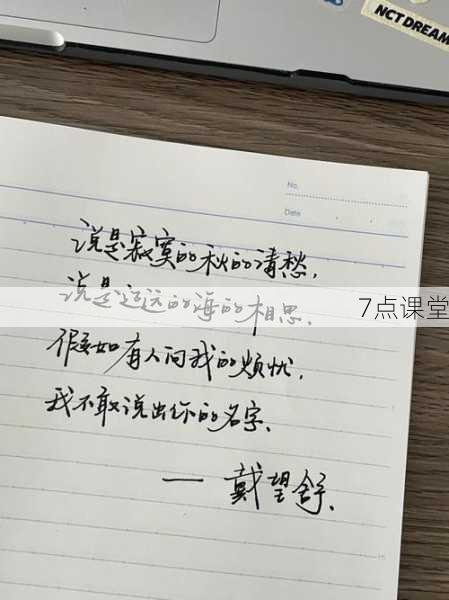 NCT DREAM
No.
Date
说是寂寞的秋的清愁，
说是辽远的海的相思．
7点课堂
假如有人问我的烦忧，
我不敢说出你的名字．
— 戴望舒．